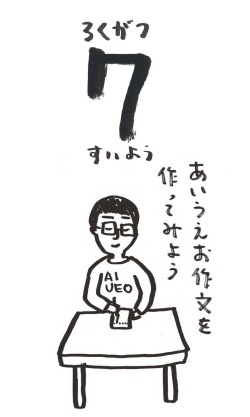 ろくがつ
7
すいよう
あいうえお作文を
作ってみよう
AI
UEO